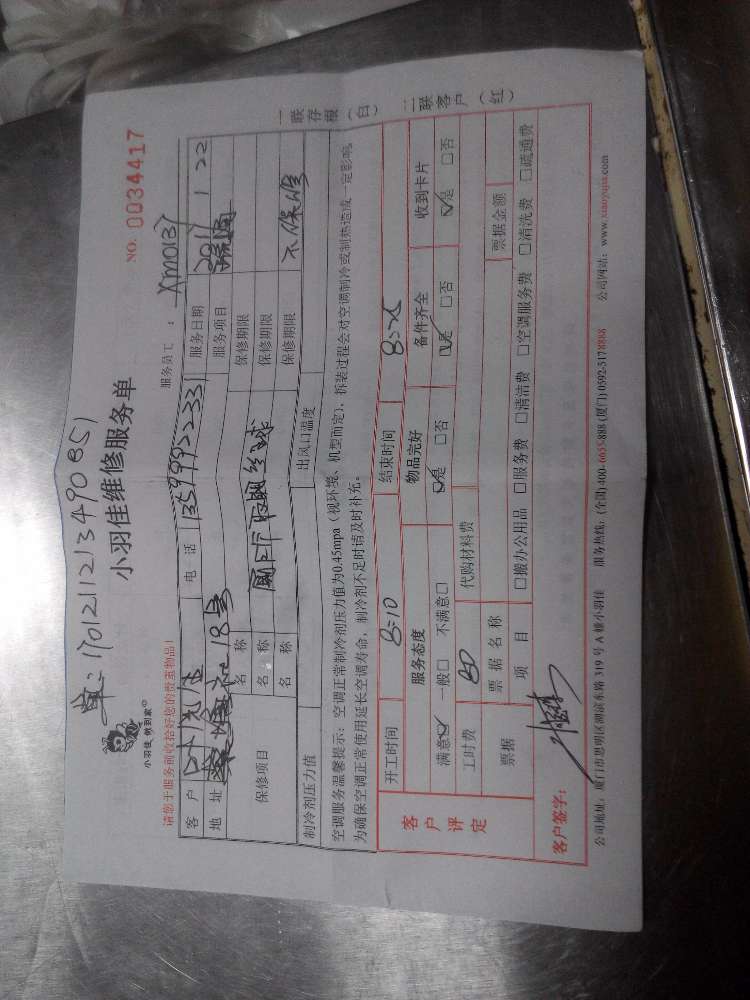 单:170121121349085
小羽佳维修服务单
NO. 0034417
小羽佳,物到家
请您于服务前收拾好您的贵重物品!
服务员工: XM0137
客户 电话 13599922331 服务日期 2017 1 22
地址 18号 服务项目
保修项目 名称 保修期限
名称 保修期限
名称 保修期限 不保修
制冷剂压力值 出风口温度
空调服务温馨提示:空调正常制冷剂压力值为0.45mpa(视环境、机型而定),拆装过程会对空调制冷或制热造成一定影响,
为确保空调正常使用延长空调寿命,制冷剂不足时请及时补充。
客户评定
开工时间 8:10 结束时间 8:25
服务态度 物品完好 备件齐全 收到卡片
满意☑ 一般□ 不满意□ ☑是 □否 ☑是 □否 ☑是 □否
工时费 80 代购材料费
票据 票据名称 票据金额
项目 □搬办公用品 □服务费 □清洁费 □空调服务费 □清洗费 □疏通费
客户签字:
公司地址:厦门市思明区湖滨东路319号A幢小羽佳 服务热线:(全国)400-6655-888 (厦门) 0592-5178888 公司网站:www.xiaoyujia.com
一联存根(白) 二联客户(红)